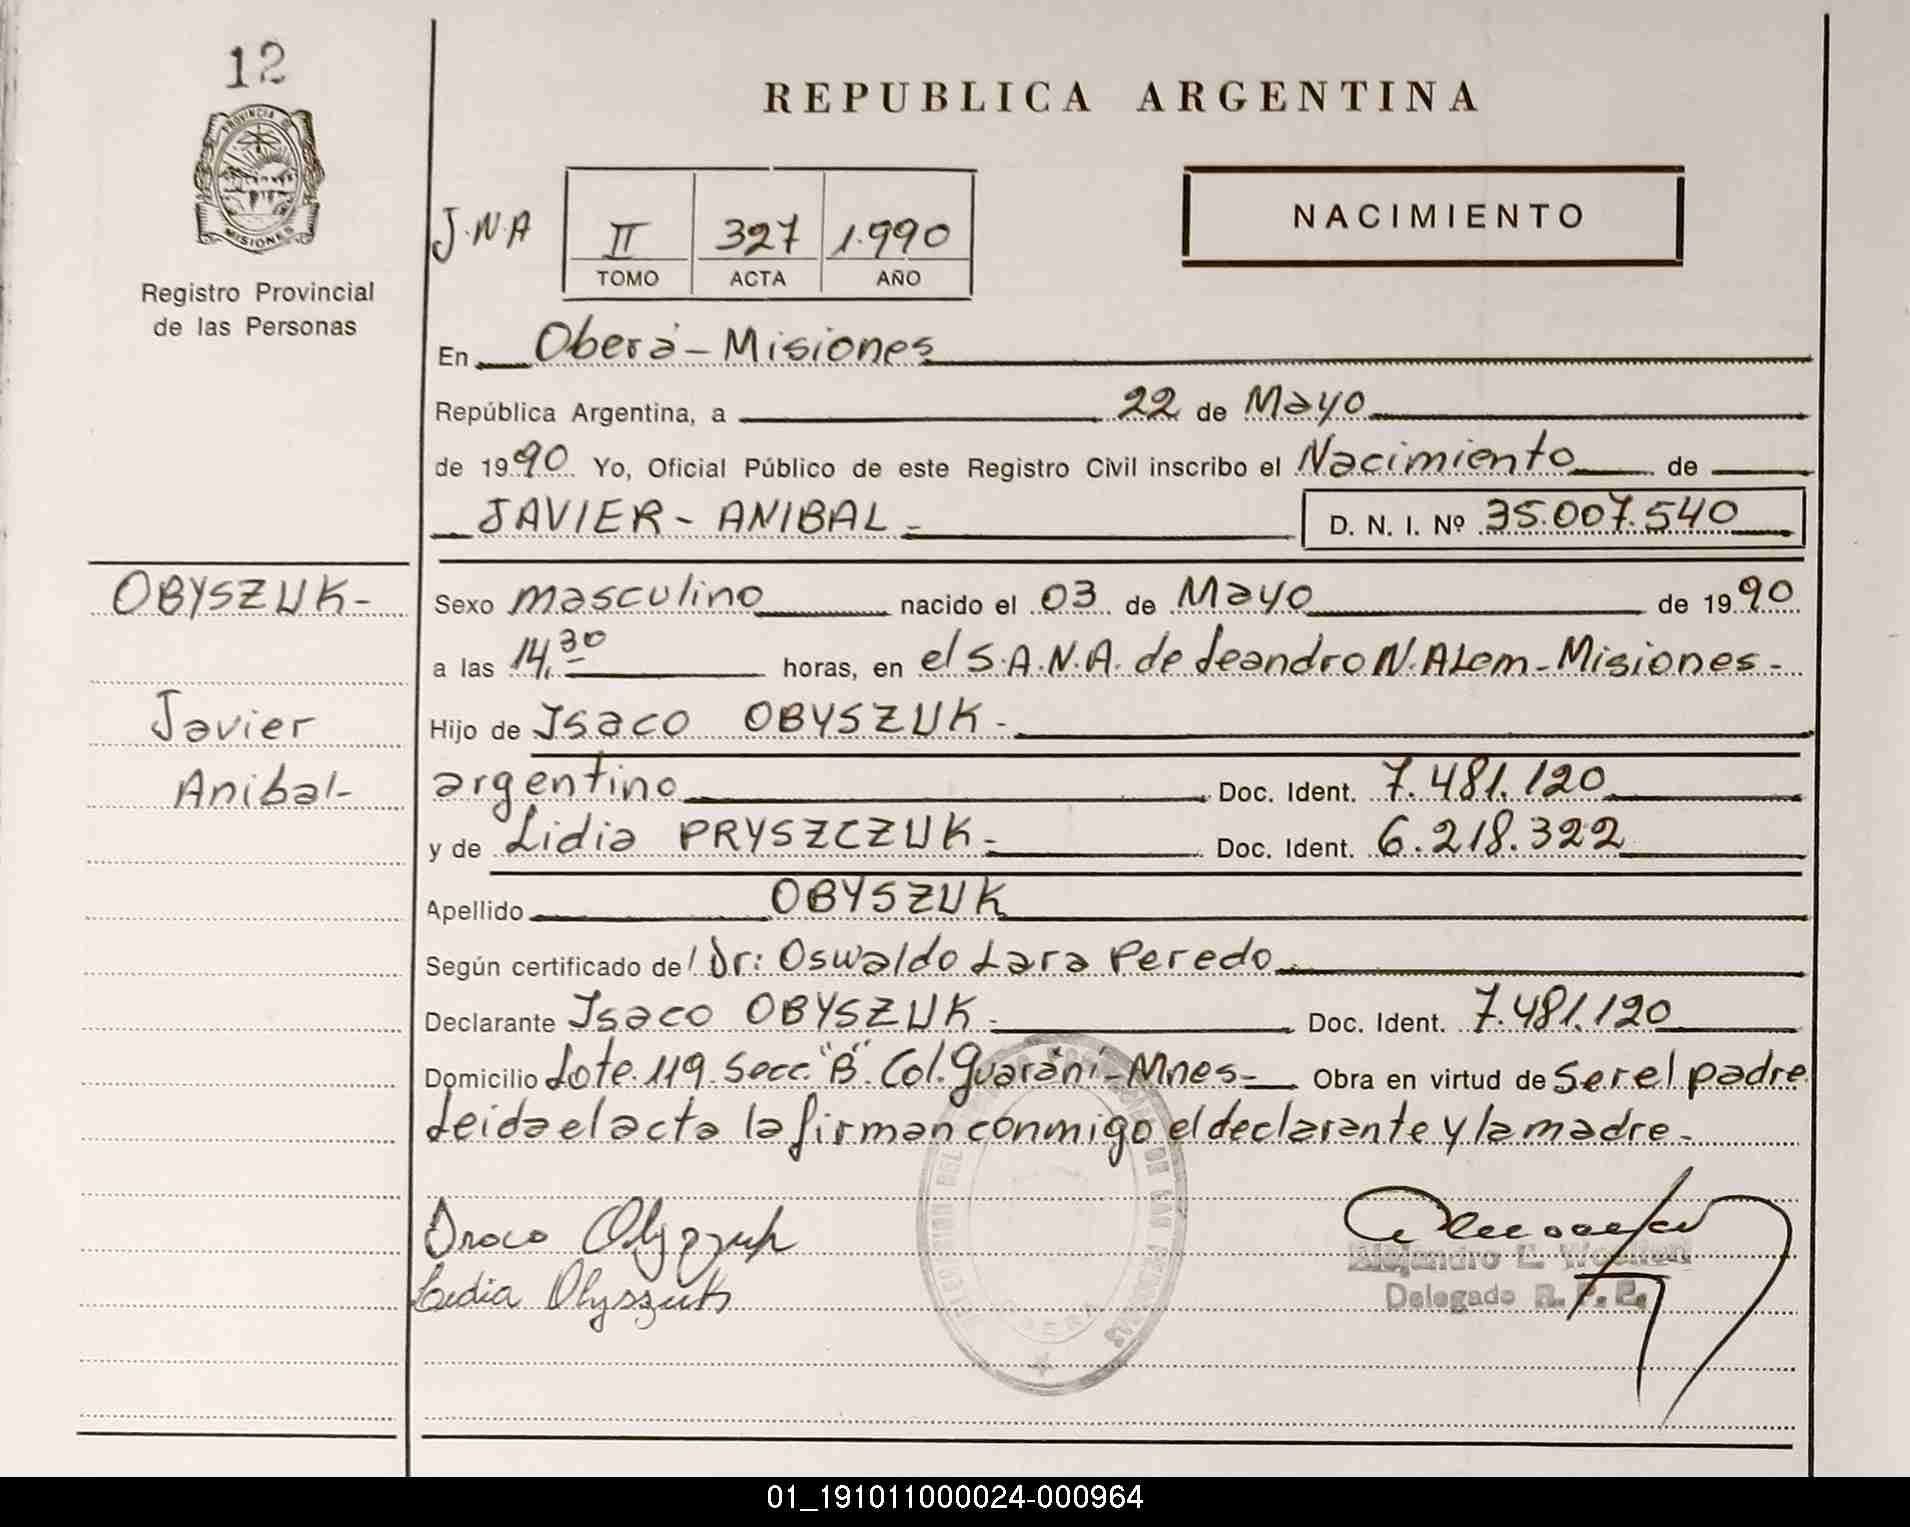 12
PROVINCIA D
MISIONES
Registro Provincial
de las Personas
REPUBLICA ARGENTINA
J.N.A
II 327 1.990
TOMO ACTA AÑO
NACIMIENTO
En Oberá - Misiones
República Argentina, a 22 de Mayo
de 1990 Yo, Oficial Público de este Registro Civil inscribo el Nacimiento de
JAVIER - ANIBAL - D. N. I. Nº 35.007.540
OBYSZUK-
Javier
Anibal-
Sexo masculino nacido el 03 de Mayo de 1990
a las 14,30 horas, en el S.A.N.A. de Leandro N. ALem - Misiones -
Hijo de Isaco OBYSZUK -
argentino Doc. Ident. 7.481.120
y de Lidia PRYSZCZUK - Doc. Ident. 6.218.322
Apellido OBYSZUK
Según certificado de Dr: Oswaldo Lara Peredo
Declarante Isaco OBYSZUK - Doc. Ident. 7.481.120
Domicilio Lote 119 Secc. "B". Col. Guaraní - Mnes - Obra en virtud de ser el padre
Leida el acta la firman conmigo el declarante y la madre -
Lidia Obyszuk
Alejandro E.
Delegado R. P. P.
01_191011000024-000964